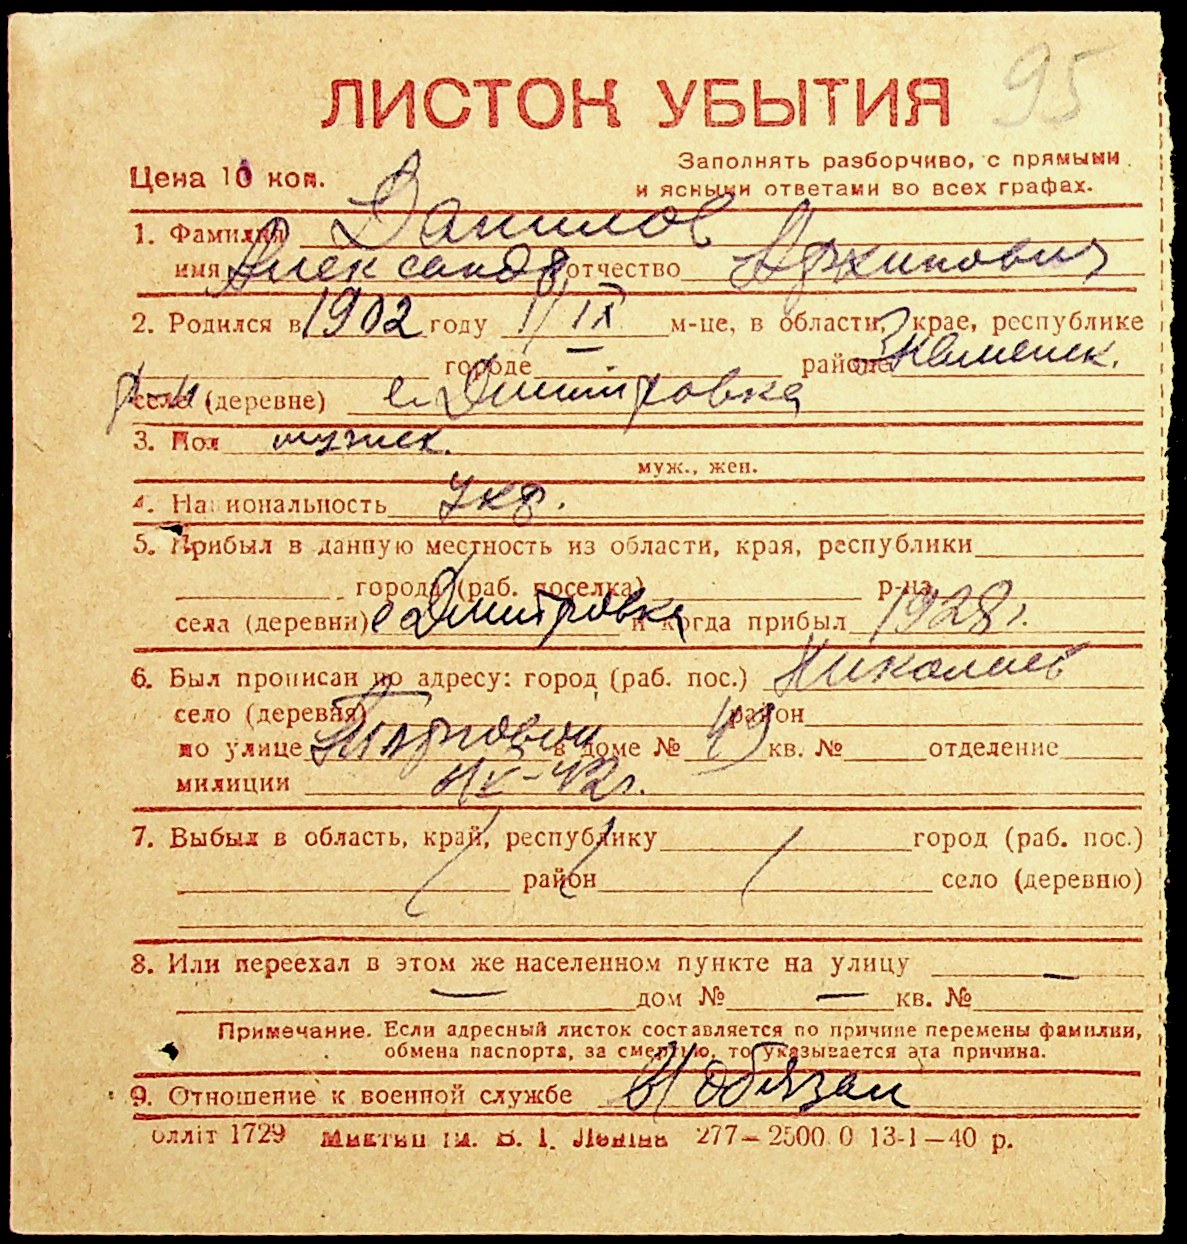 95
ЛИСТОК УБЫТИЯ
Цена 10 коп.
Заполнять разборчиво, с прямыми
и ясными ответами во всех графах.
1. Фамилия Данилов
имя Александр отчество Архипович
2. Родился в 1902 году 1/IX м-це, в области, крае, республике
городе районе Знаменск.
р-н село (деревне) с. Дмитровка
3. Пол мужск.
муж., жен.
4. Национальность Укр.
5. Прибыл в данную местность из области, края, республики
города (раб. поселка) р-на
села (деревни) с Дмитровка и когда прибыл 1928 г.
6. Был прописан по адресу: город (раб. пос.) Николаев
село (деревня) район
по улице в доме № 49 кв. № отделение
милиции
7. Выбыл в область, край, республику город (раб. пос.)
район село (деревню)
8. Или переехал в этом же населенном пункте на улицу —
— дом № — кв. №
Примечание. Если адресный листок составляется по причине перемены фамилии,
обмена паспорта, за смертью, то указывается эта причина.
9. Отношение к военной службе в/обязан
олліт 1729 ім. В. І. Леніна 277—2500.0 13-1—40 р.